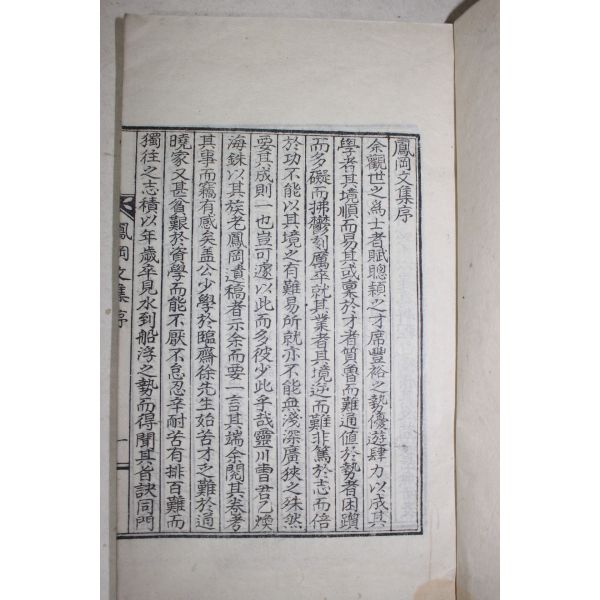 鳳岡文集序
余觀世之爲士者賦聰穎之才席豐裕之勢優遊肆力以成其
學者其境順而易其或稟於才者質魯而難通値於勢者困躓
而多礙而拂鬱刻厲卒就其業者其境逆而難非篤於志而倍
於功不能以其境之有難易所就亦不能無淺深廣狹之殊然
要其成則一也豈可遽以此而多彼少此乎哉靈川曺君乙煥
海銖以其族老鳳岡遺稿者示余而要一言其端余閱其卷考
其事而竊有感矣盖公少學於臨齋徐先生始苦才之難於通
曉家又甚窘艱於資學而能不厭不怠忍辛耐苦有排百難而
獨往之志積以年歲卒見水到船浮之勢而得聞其旨訣同門
鳳岡文集序
一